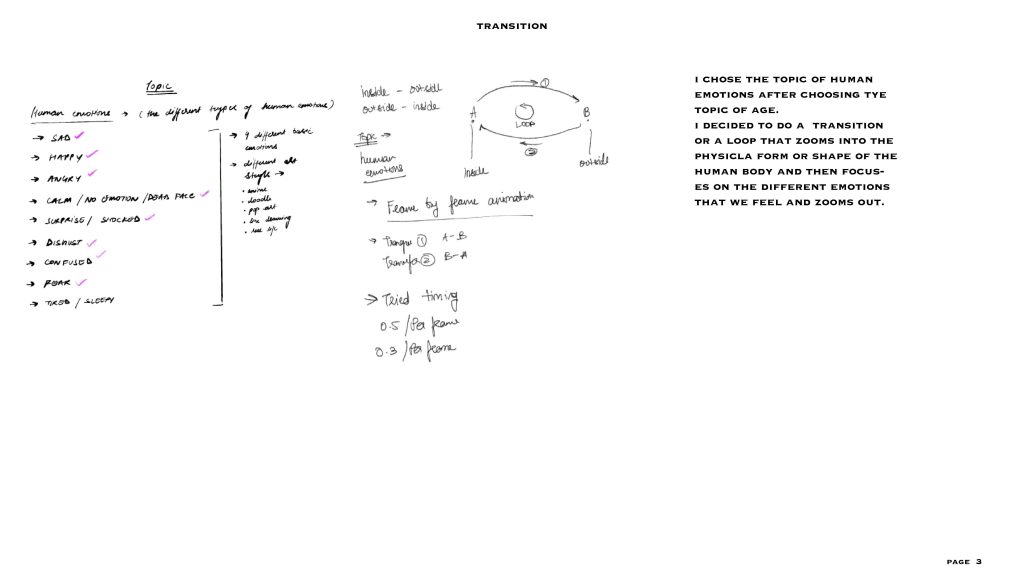 TRANSITION
Topic
Human emotions → (the different types of human emotions)
→ SAD
→ HAPPY
→ ANGRY
→ CALM / NO EMOTION / DEAD FACE
→ SURPRISE / SHOCKED
→ DISGUST
→ CONFUSED
→ FEAR
→ TIRED / SLEEPY
→ 9 different basic
emotions
→ different art
style →
• anime
• doodle
• pop art
• line drawing
inside - outside
outside - inside
Topic →
human
emotions
①
A
B
LOOP
②
Inside
outside
→ Frame by frame animation
→ ① A-B
② B-A
→ Tried timing
0.5 / Per frame
0.3 / Per frame
I CHOSE THE TOPIC OF HUMAN
EMOTIONS AFTER CHOOSING TYE
TOPIC OF AGE.
I DECIDED TO DO A TRANSITION
OR A LOOP THAT ZOOMS INTO THE
PHYSICLA FORM OR SHAPE OF THE
HUMAN BODY AND THEN FOCUS-
ES ON THE DIFFERENT EMOTIONS
THAT WE FEEL AND ZOOMS OUT.
PAGE 3